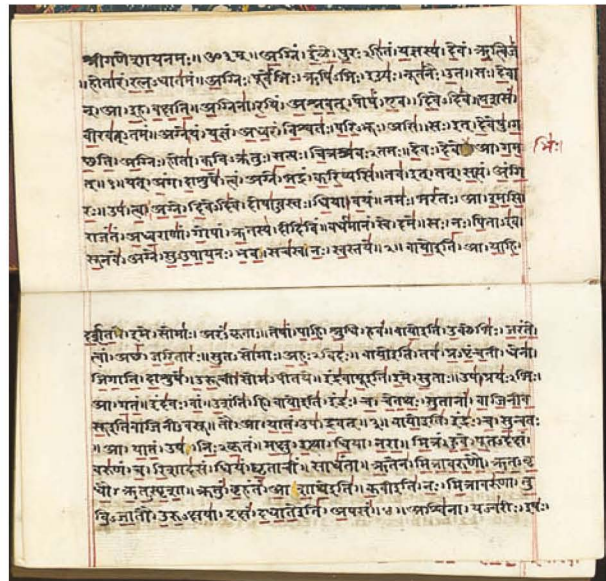 श्रीगणेशायनमः॥ ॐ३म्॥ अग्निं। ईळे। पुरःऽहितं। यज्ञस्य। देवं। ऋत्विजं
॥होतारं। रत्नऽधातमं॥ अग्निः। पूर्वेभिः। ऋषिभिः। ईड्यः। नूतनैः। उत। सः। देवा
न्। आ। इह। वक्षति॥ अग्निना। रयिं। अश्नवत्। पोषं। एव। दिवेऽदिवे। यशसं
वीरवत्ऽतमं॥ अग्ने। यं। यज्ञं। अध्वरं। विश्वतः। परिऽभूः। असि। सः। इत्। देवेषु। ग
च्छति॥ अग्निः। होता। कविऽक्रतुः। सत्यः। चित्रश्रवःऽतमः। देवः। आ। गम
भिः।
त्॥१॥ यत्। अंग। दाशुषे। त्वं। अग्ने। भद्रं। करिष्यसि। तव। इत्। तत्। सत्यं। अंगि
रः॥ उप। त्वा। अग्ने। दिवेऽदिवे। दोषाऽवस्तः। धिया। वयं। नमः। भरंतः। आ। इमसि
राजंतं। अध्वराणां। गोपां। ऋतस्य। दीदिविं। वर्धमानं। स्वे। दमे॥ सः। नः। पिताऽइव।
सूनवे। अग्ने। सुऽउपायनः। भव। सचस्व। नः। स्वस्तये॥२॥ वायोइति। आ। याहि।
दर्शत। इमे। सोमाः। अरंऽकृताः। तेषां। पाहि। श्रुधि। हवं॥ वायोइति। उक्थेभिः। जरंते।
त्वां। अच्छ। जरितारः। सुतऽसोमाः। अहःऽविदः॥ वायोइति। तव। प्रऽपृंचती। धेना।
जिगाति। दाशुषे। उरूची। सोमऽपीतये॥ इंद्रवायूइति। इमे। सुताः। उप। प्रयःऽभिः।
आ। गतं। इंदवः। वां। उशंति। हि॥ वायोइति। इंद्रः। च। चेतथः। सुतानां। वाजिनीव
सूइतिवाजिनीवसू। तौ। आ। यातं। उप। द्रवत्॥३॥ वायोइति। इंद्रः। च। सुन्वतः।
आ। यातं। उप। निःऽकृतं। मक्षु। इत्था। धिया। नरा॥ मित्रं। हुवे। पूतऽदक्षं।
वरुणं। च। रिशादसं। धियं। घृताचीं। साधंता॥ ऋतेन। मित्रावरुणौ। ऋतऽवृ
धौ। ऋतऽस्पृशा। क्रतुं। बृहंतं। आशाथेइति॥ कवीइति। नः। मित्रावरुणा। तु
विऽजातौ। उरुऽक्षया। दक्षं। दधातेइति। अपसं॥४॥ अश्विना। यज्वरीः। इषः।